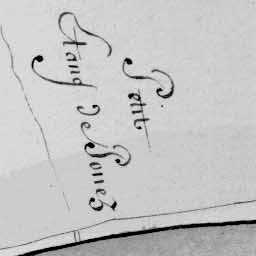 Petit
Etang De Pone3